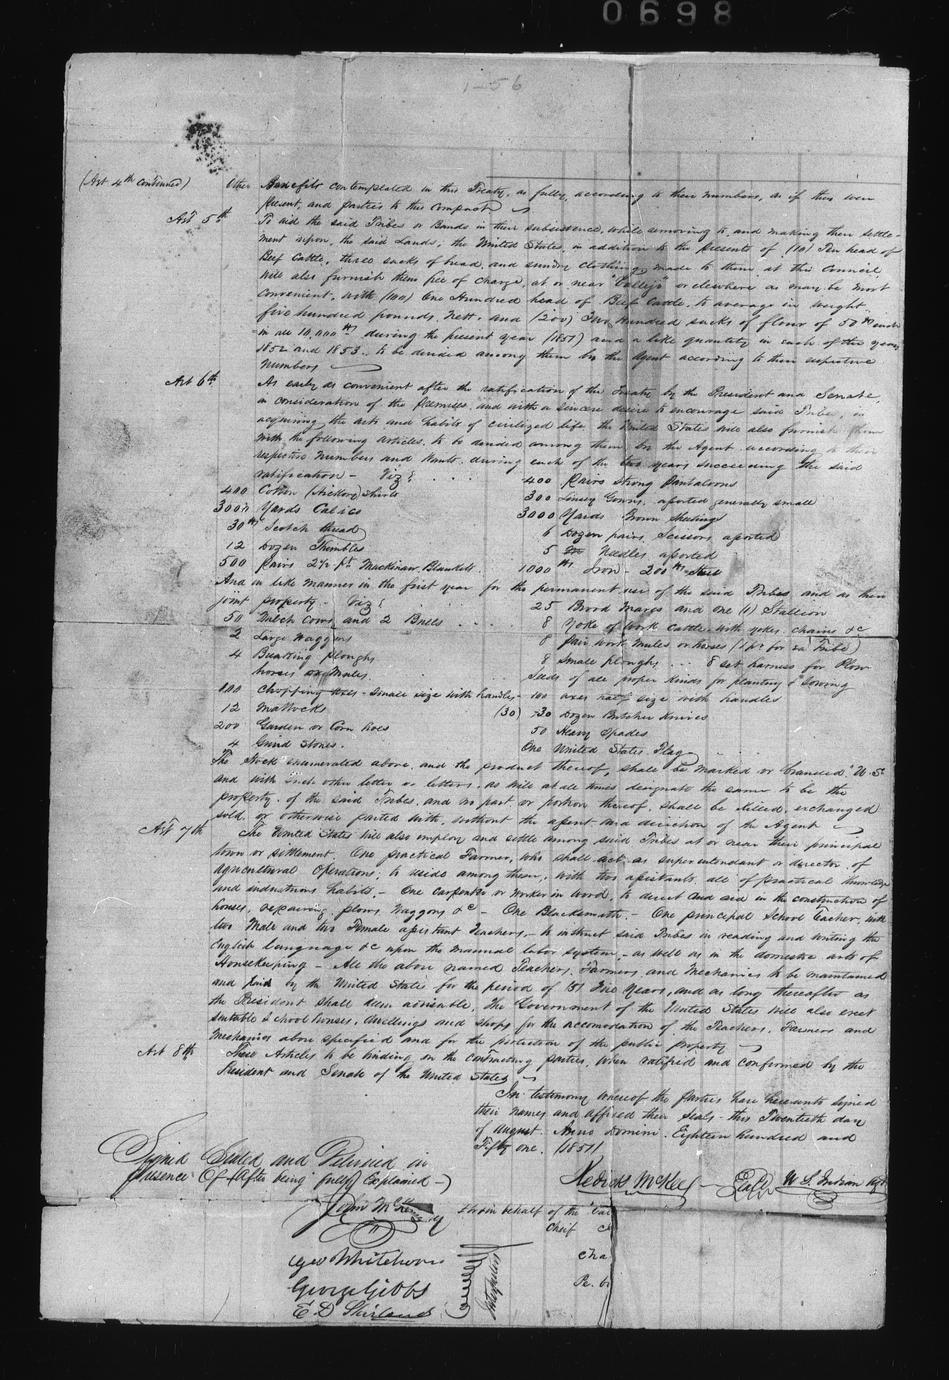 0698
1-56
(Art 4th continued) Other Benefits contemplated in this Treaty, as fully, according to their numbers, as if they were
present, and parties to this Compact
Art 5th To aid the said Tribes or Bands in their subsistence, while removing to, and making their settle-
ment upon, the said Lands; the United States, in addition to the presents of (10) Ten head of
Beef Cattle, three sacks of bread, and sundry clothing, made to them at this Council
Will also furnish them free of charge, at or near "Colleys" or elsewhere as may be most
convenient, with (100) One Hundred head of Beef Cattle, to average in weight
five hundred pounds, nett, and (200) Two Hundred sacks of flour of 50 lbs each
in all 10,000 lbs during the present year (1851) and a like quantity in each of the years
1852 and 1853. to be divided among them by the Agent according to their respective
Numbers
Art 6th As early as convenient after the ratification of the Treaty by the President and Senate,
in consideration of the premises, and with a sincere desire to encourage said Tribes, in
acquiring the arts and habits of civilized life, the United States will also furnish them
with the following articles, to be divided among them by the Agent according to their
respective numbers and Wants, during each of the two years succeeding the said
ratification - Viz:
400 Pairs Strong Pantaloons
400 Cotton (Hickory) Shirts
300 Linsey Gowns, assorted generally small
3000 Yards Calico
3000 Yards Brown Sheeting
30 lbs Scotch thread
6 Dozen pairs Scissors assorted
12 Dozen Thimbles
5 Needles assorted
500 Pairs 2½ pt Mackinaw Blankets
1000 lbs Iron - 200 lbs Steel
And in like manner in the first year for the permanent use of the said Tribes and as their
joint property - Viz:
25 Brood Mares and one (1) Stallion
50 Milch Cows and 2 Bulls
8 Yoke of Work Cattle with yokes, chains &c
2 Large Waggons
8 pair work Mules or horses (1 pr for ea Tribe)
4 Breaking ploughs
8 Small ploughs ... 8 set harness for Plow
horses or Mules.
Seeds of all proper kinds for planting & Sowing
100 Chopping Axes - small size with handles
100 axes half size with handles
12 Mattocks
(30) 30 Dozen Butcher Knives
200 Garden or Corn hoes
50 Heavy Spades
4 Grind Stones.
One United States Flag
The Stock enumerated above, and the product thereof, shall be marked or branded "U.S"
and with such other letter or letters, as will at all times designate the same to be the
property of the said Tribes, and no part or portion thereof, shall be killed, exchanged
sold, or otherwise parted with, without the assent and direction of the Agent
Art 7th The United States will also employ and settle among said Tribes at or near their principal
town or settlement. One practical Farmer, who shall act as superintendant or director of
Agricultural Operations; to reside among them, with two assistants, all of practical knowledge
and industrious habits, - One Carpenter or worker in wood, to direct and aid in the construction of
houses, repairing plows, Waggons &c - One Blacksmith, - One principal School Teacher, with
two Male and two Female assistant Teachers, - to instruct said Tribes in reading and writing the
English language &c upon the manual labor system, - as well as in the domestic arts of
Housekeeping - All the above named Teachers, Farmers, and Mechanics to be maintained
and paid by the United States for the period of Five Years, and as long thereafter as
the President shall deem advisable, the Government of the United States will also erect
suitable School houses, dwellings and shops for the accomodation of the Teachers, Farmers and
Mechanics above specified and for the protection of the public property
Art 8th These Articles to be binding on the contracting parties, when ratified and confirmed by the
President and Senate of the United States
In testimony whereof the parties have hereunto signed
their names and affixed their seals this Twentieth day
of august Anno Domini Eighteen hundred and
Fifty one. (1851)
Signed Sealed and Delivered in
presence Of (After being fully Explained -)
Redick McKee Seal U. S. Indian Agt
John McKee
for in behalf of the "Cal
Cheif
Cha
Geo Whitehorn
Re. bi
George Gibbs
E D Shirland
Interpreter